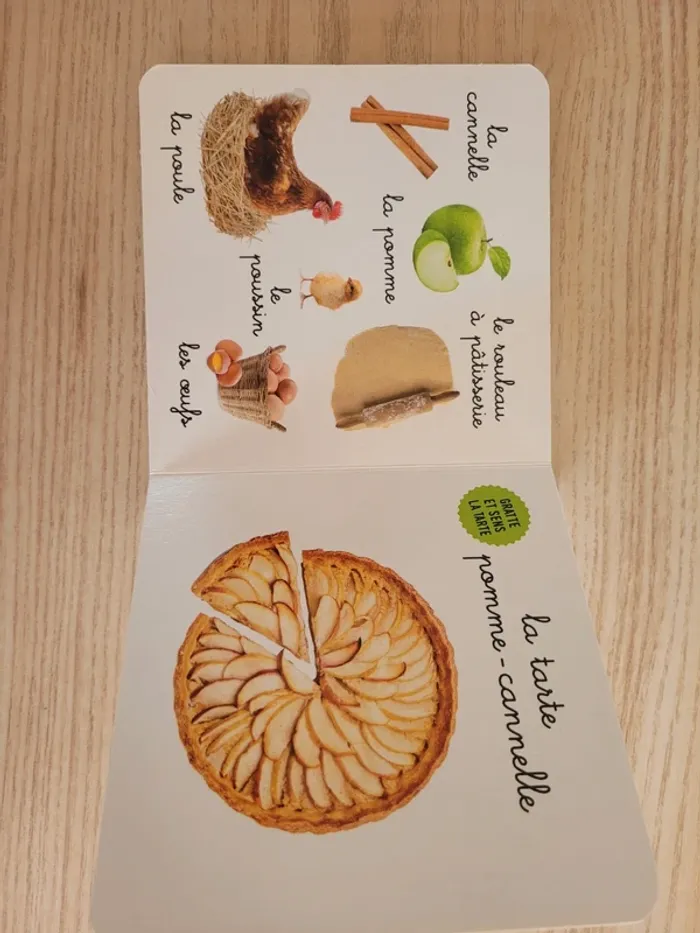 la
cannelle
la pomme
le rouleau
à pâtisserie
la poule
le
poussin
les œufs
GRATTE
ET SENS
LA TARTE
la tarte
pomme-cannelle